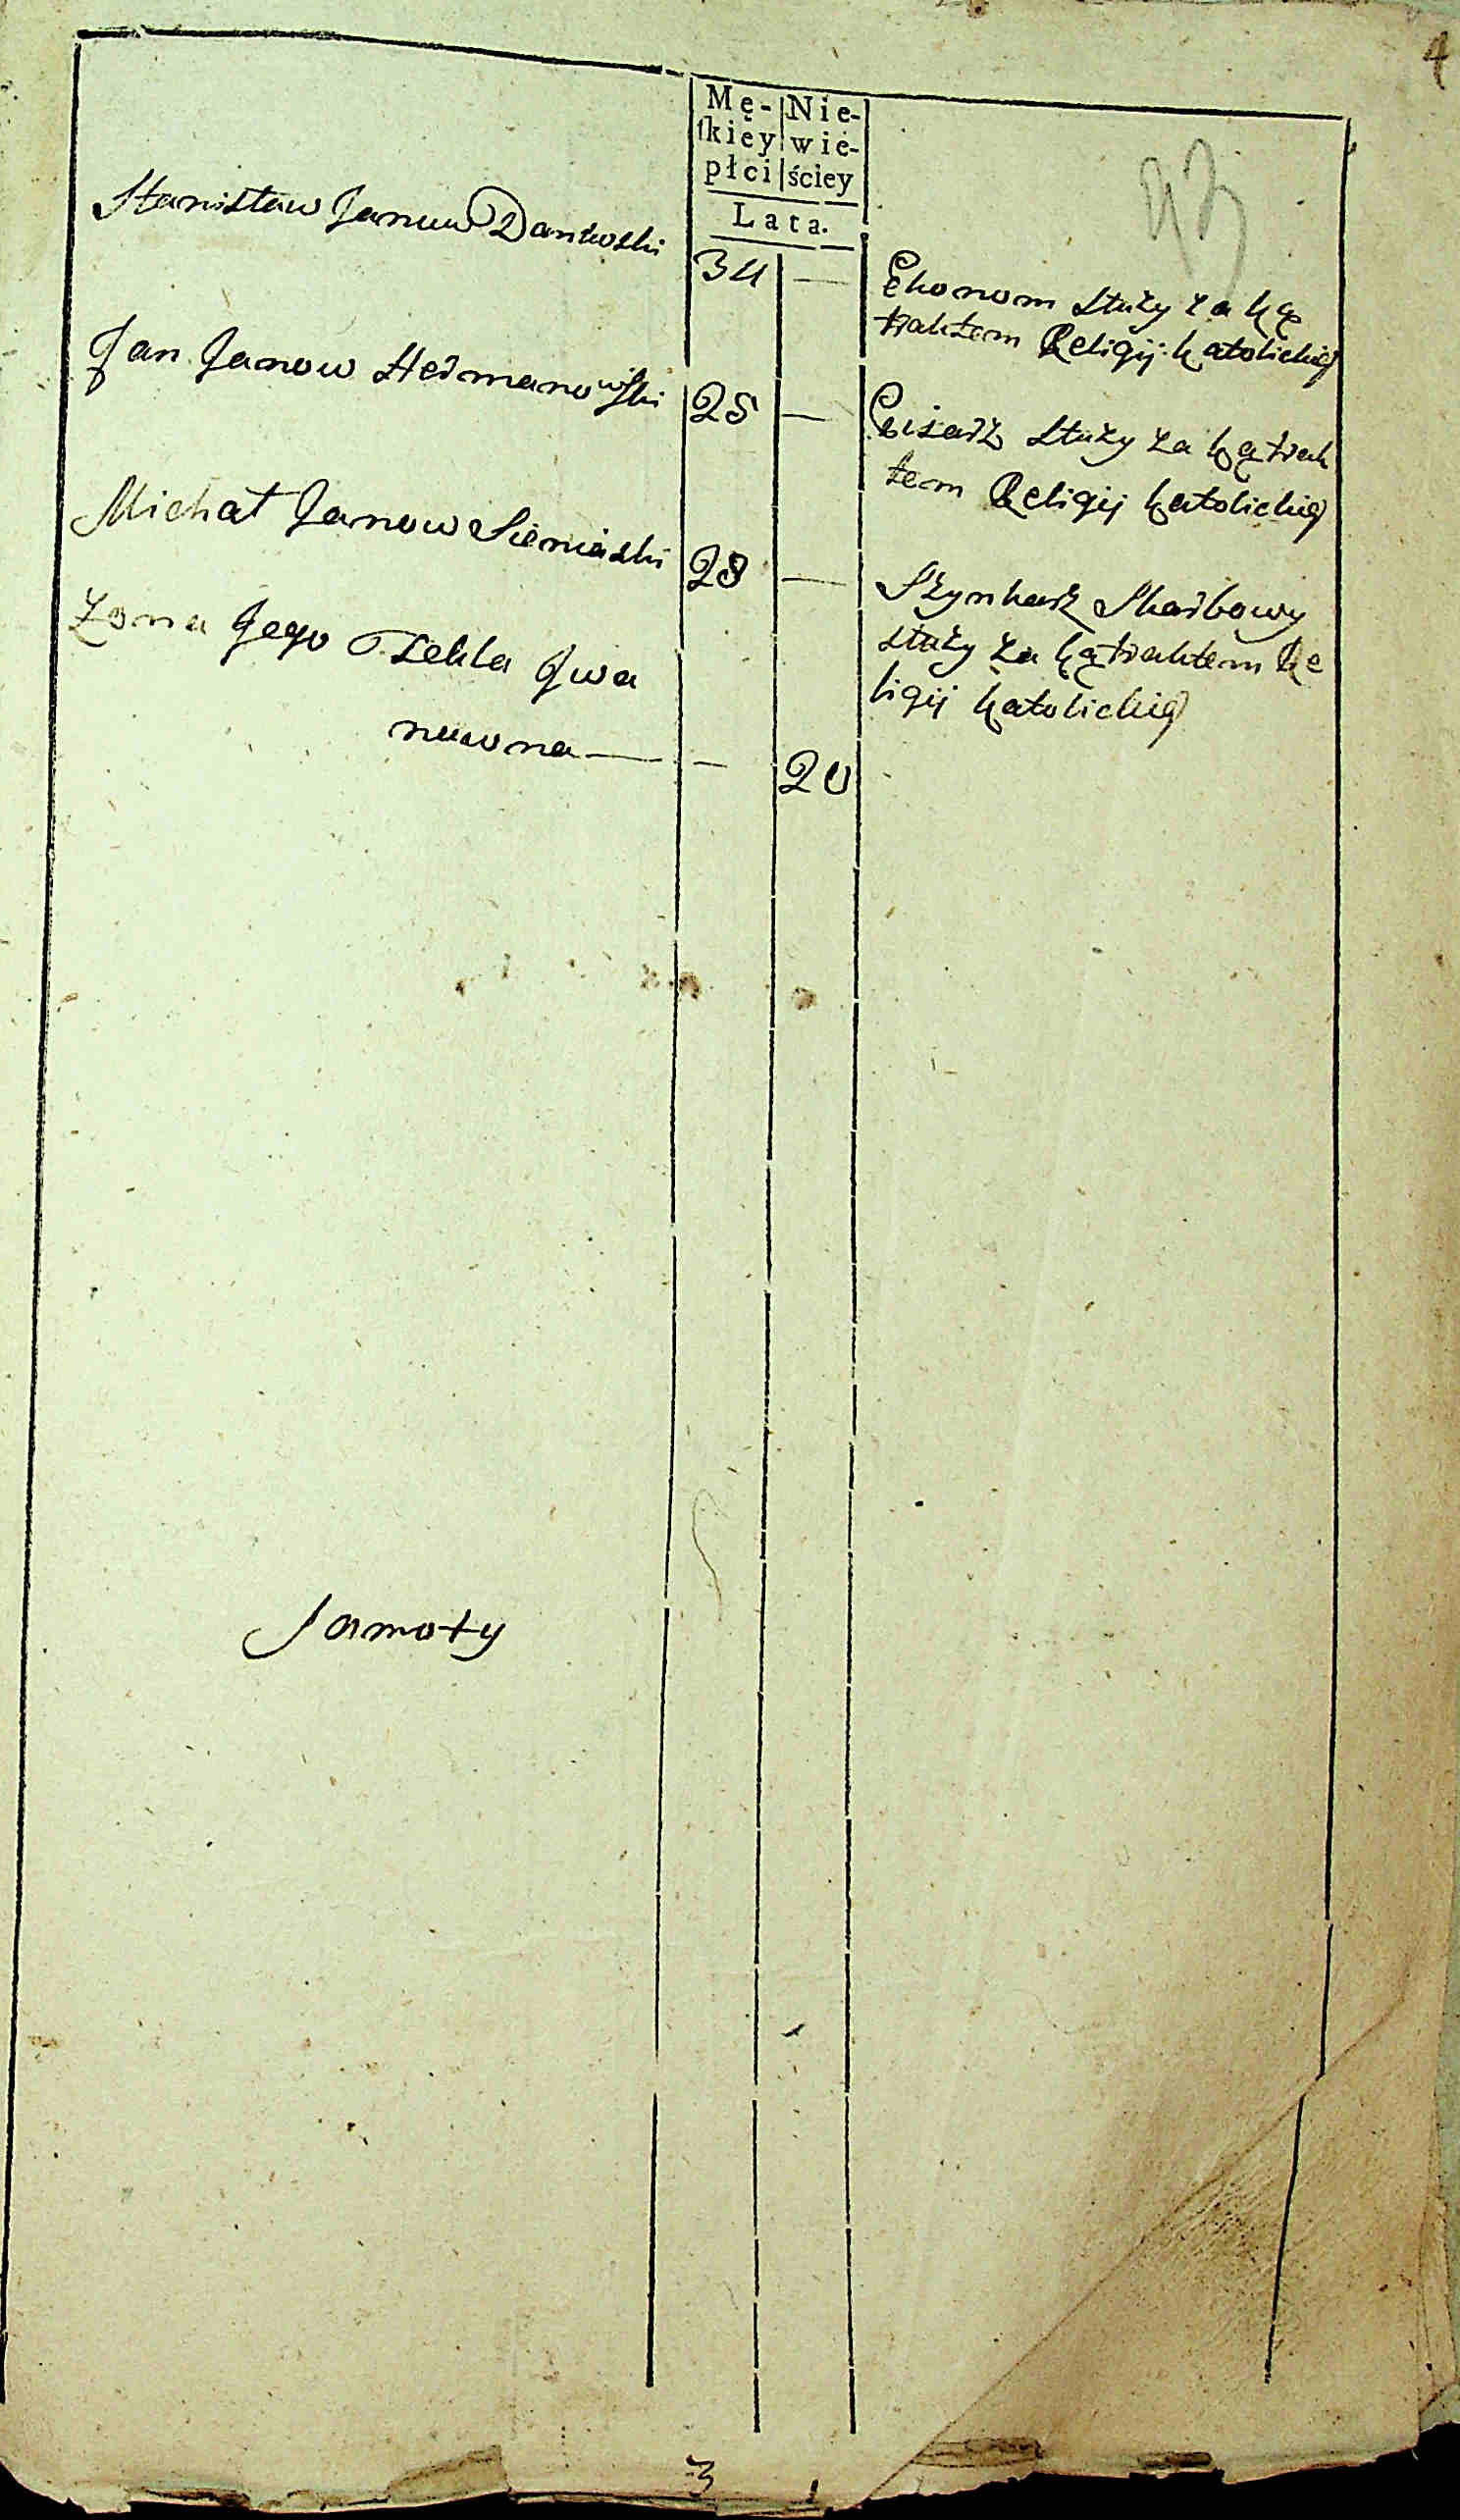 4
Mę-
ſkiey
płci
Nie-
wie-
ściey
Lata.
93
Stanisław Janow Dankoski
34 —
Ekonom służy za ką
traktem Religij katolickiej
Jan Janow Hermanowski
25 —
Pisarz służy za kątrak
tem Religij katolickiej
Michał Janow Sieniaski
28 —
Szynkarz Skarbowy
służy za kątraktem Re
ligij katolickiej
Żona Jego Tekla Jwa
nowna — — 20
3